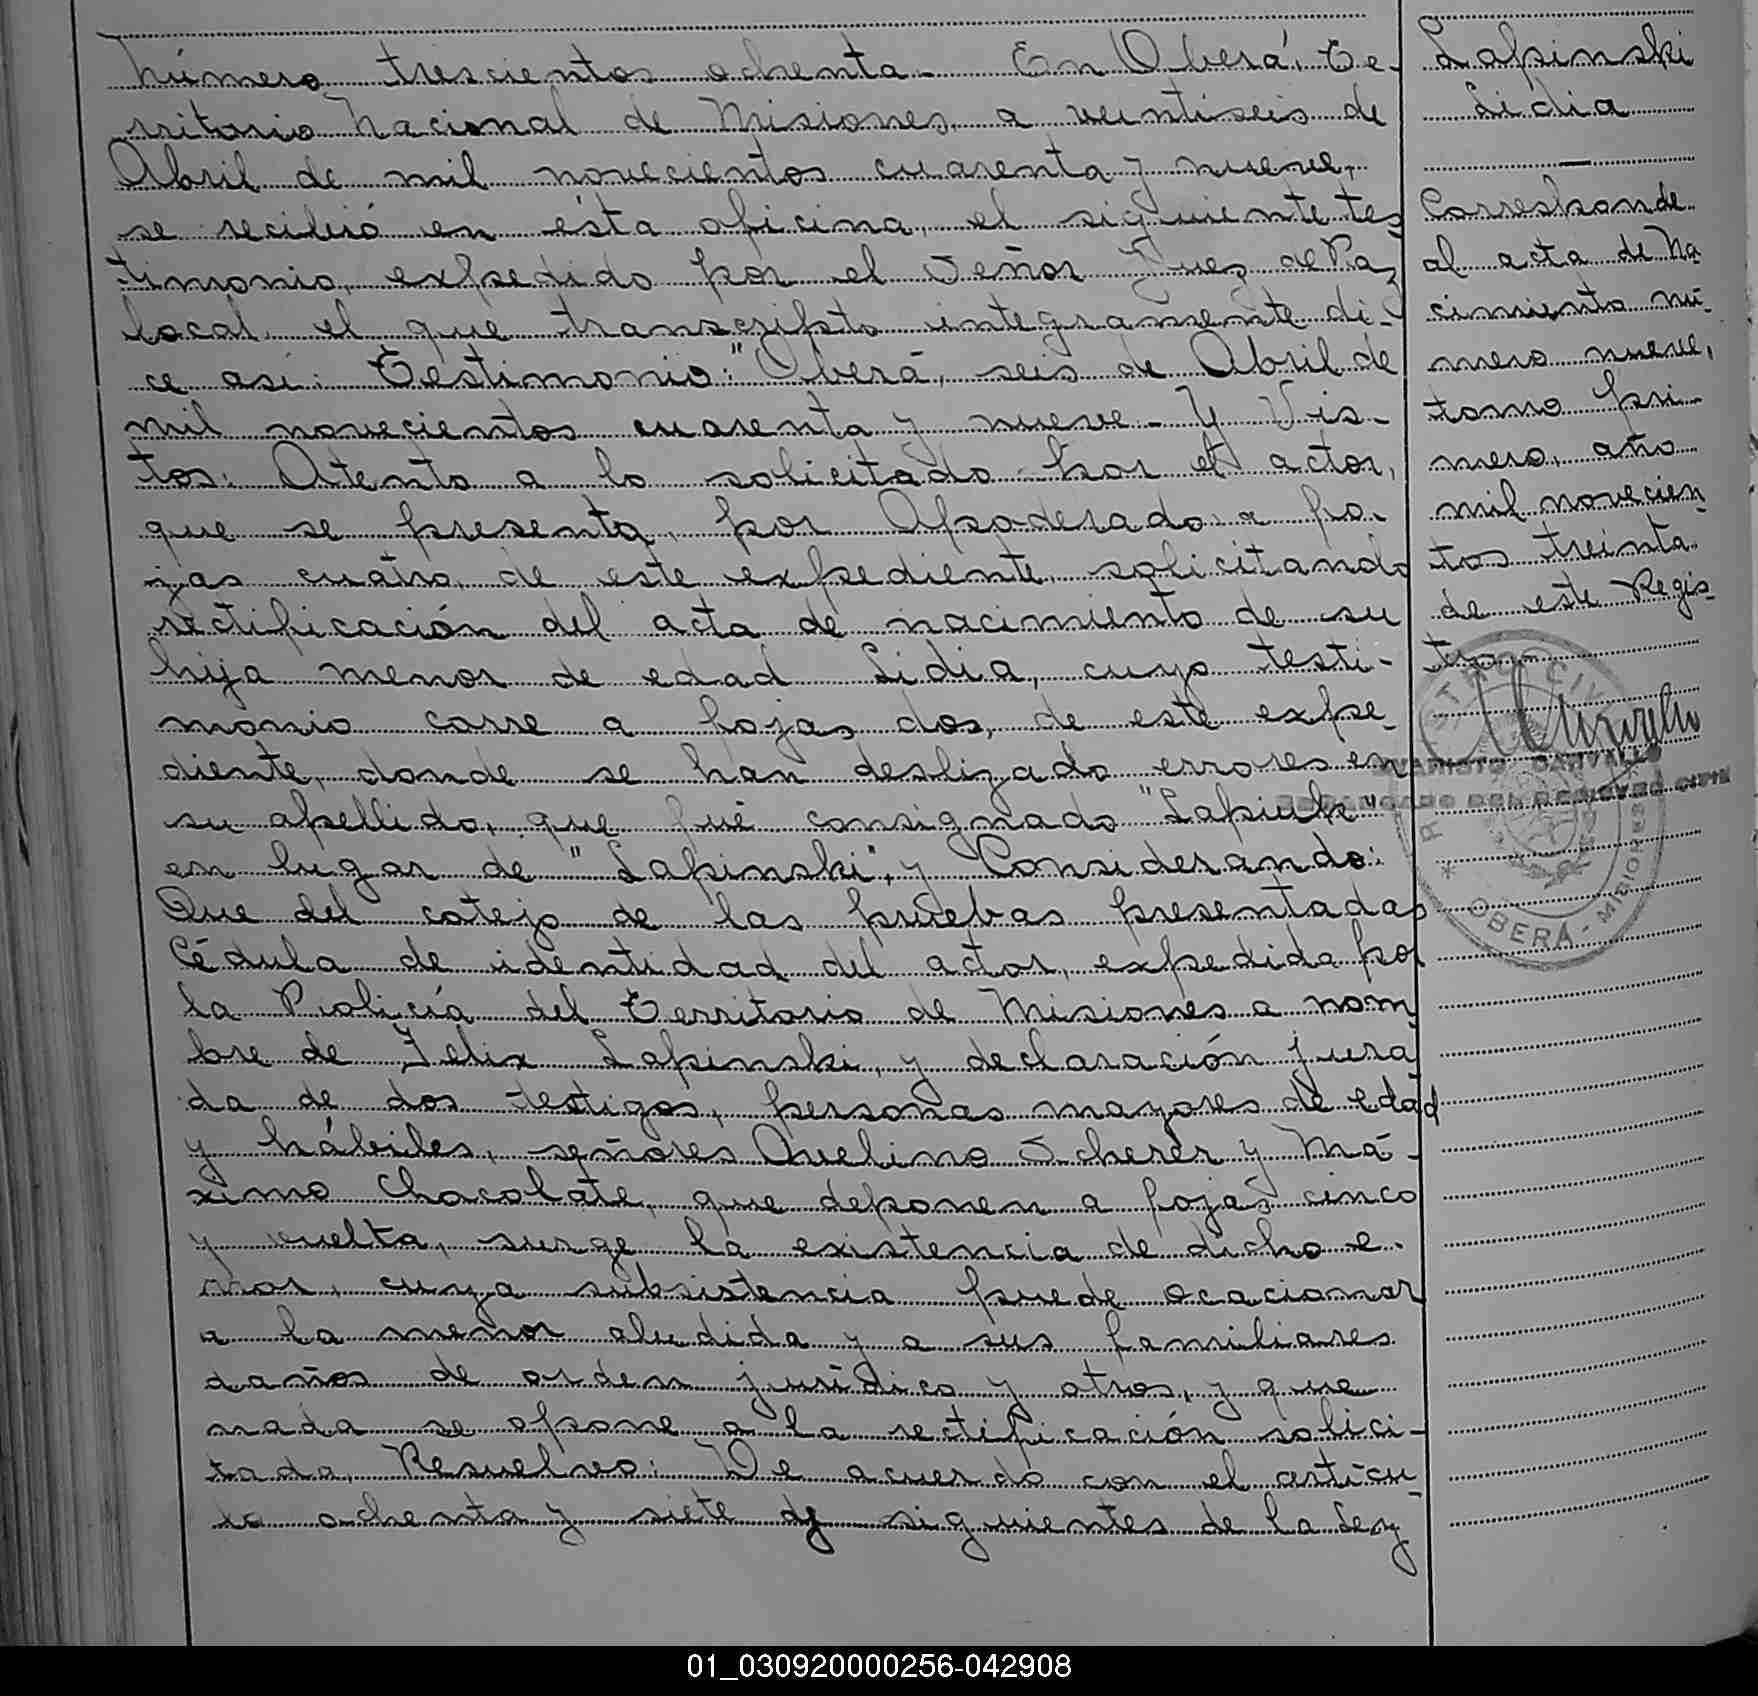 Número trescientos ochenta. En Oberá, Te-
rritorio Nacional de Misiones, a veintiseis de
Abril de mil novecientos cuarenta y nueve,
se recibió en ésta oficina, el siguiente tes
timonio, expedido por el Señor Juez de Paz
local, el que transcripto integramente di-
ce así: Testimonio: "Oberá, seis de Abril de
mil novecientos cuarenta y nueve - Y Vis-
tos: Atento a lo solicitado por el actor,
que se presenta, por Apoderado a fo-
jas cuatro, de este expediente, solicitando
rectificación del acta de nacimiento de su
hija menor de edad Lidia, cuyo testi-
monio corre a fojas dos, de este expe-
diente, donde se han deslizado errores en
su apellido, que fué consignado "Lapiuk"
en lugar de "Lapinski", y Considerando:
Que del cotejo de las pruebas presentadas
Cédula de identidad del actor, expedida por
la Policía del Territorio de Misiones a nom
bre de Felix Lapinski, y declaración jura
da de dos testigos, personas mayores de edad
y hábiles, señores Avelino Scherer y Má-
ximo Chocolate, que deponen a fojas cinco
y vuelta, surge la existencia de dicho e-
rror, cuya subsistencia puede ocacionar
a la menor aludida y a sus familiares
daños de orden jurídico y otros, y que
nada se opone a la rectificación solici-
tada, Resuelvo: De acuerdo con el artícu
lo ochenta y siete y siguientes de la Ley
Lapinski
Lidia
Corresponde
al acta de Na
cimiento nú-
mero nueve,
tomo pri-
mero, año
mil novecien
tos treinta
de este Regis-
tro.-
EVARISTO CARVALLO
ENCARGADO DEL REGISTRO CIVIL
OBERÁ - MISIONES
01_030920000256-042908